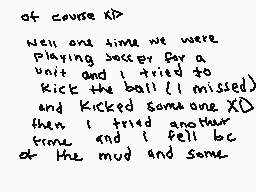 of course XD
Well one time we were
playing soccer for a
unit and I tried to
kick the ball (I missed)
and kicked someone XD
then I tried another
time and I fell bc
of the mud and some